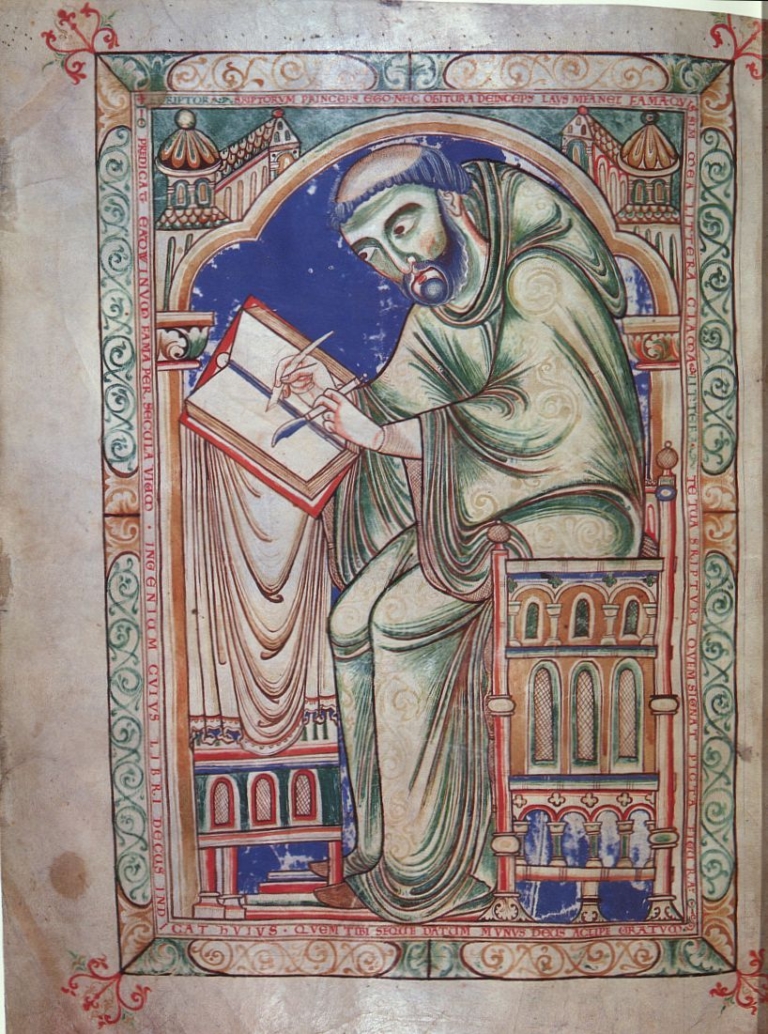 SCRIPTOR SCRIPTORVM PRINCEPS EGO NEC OBITVRA DEINCEPS LAVS MEA NEC FAMA QVI
S SIM MEA LITTERA CLAMA LITTERA TE TVA SCRIPTVRA QVEM SIGNAT PICTA FIGVRA
PREDICAT EADWINVM FAMA PER SECVLA VIVVM · INGENIVM CVIVS LIBRI DECVS IND
ICAT HVIVS · QVEM TIBI SEQVE DATVM MVNVS DEVS ACCIPE GRATVM